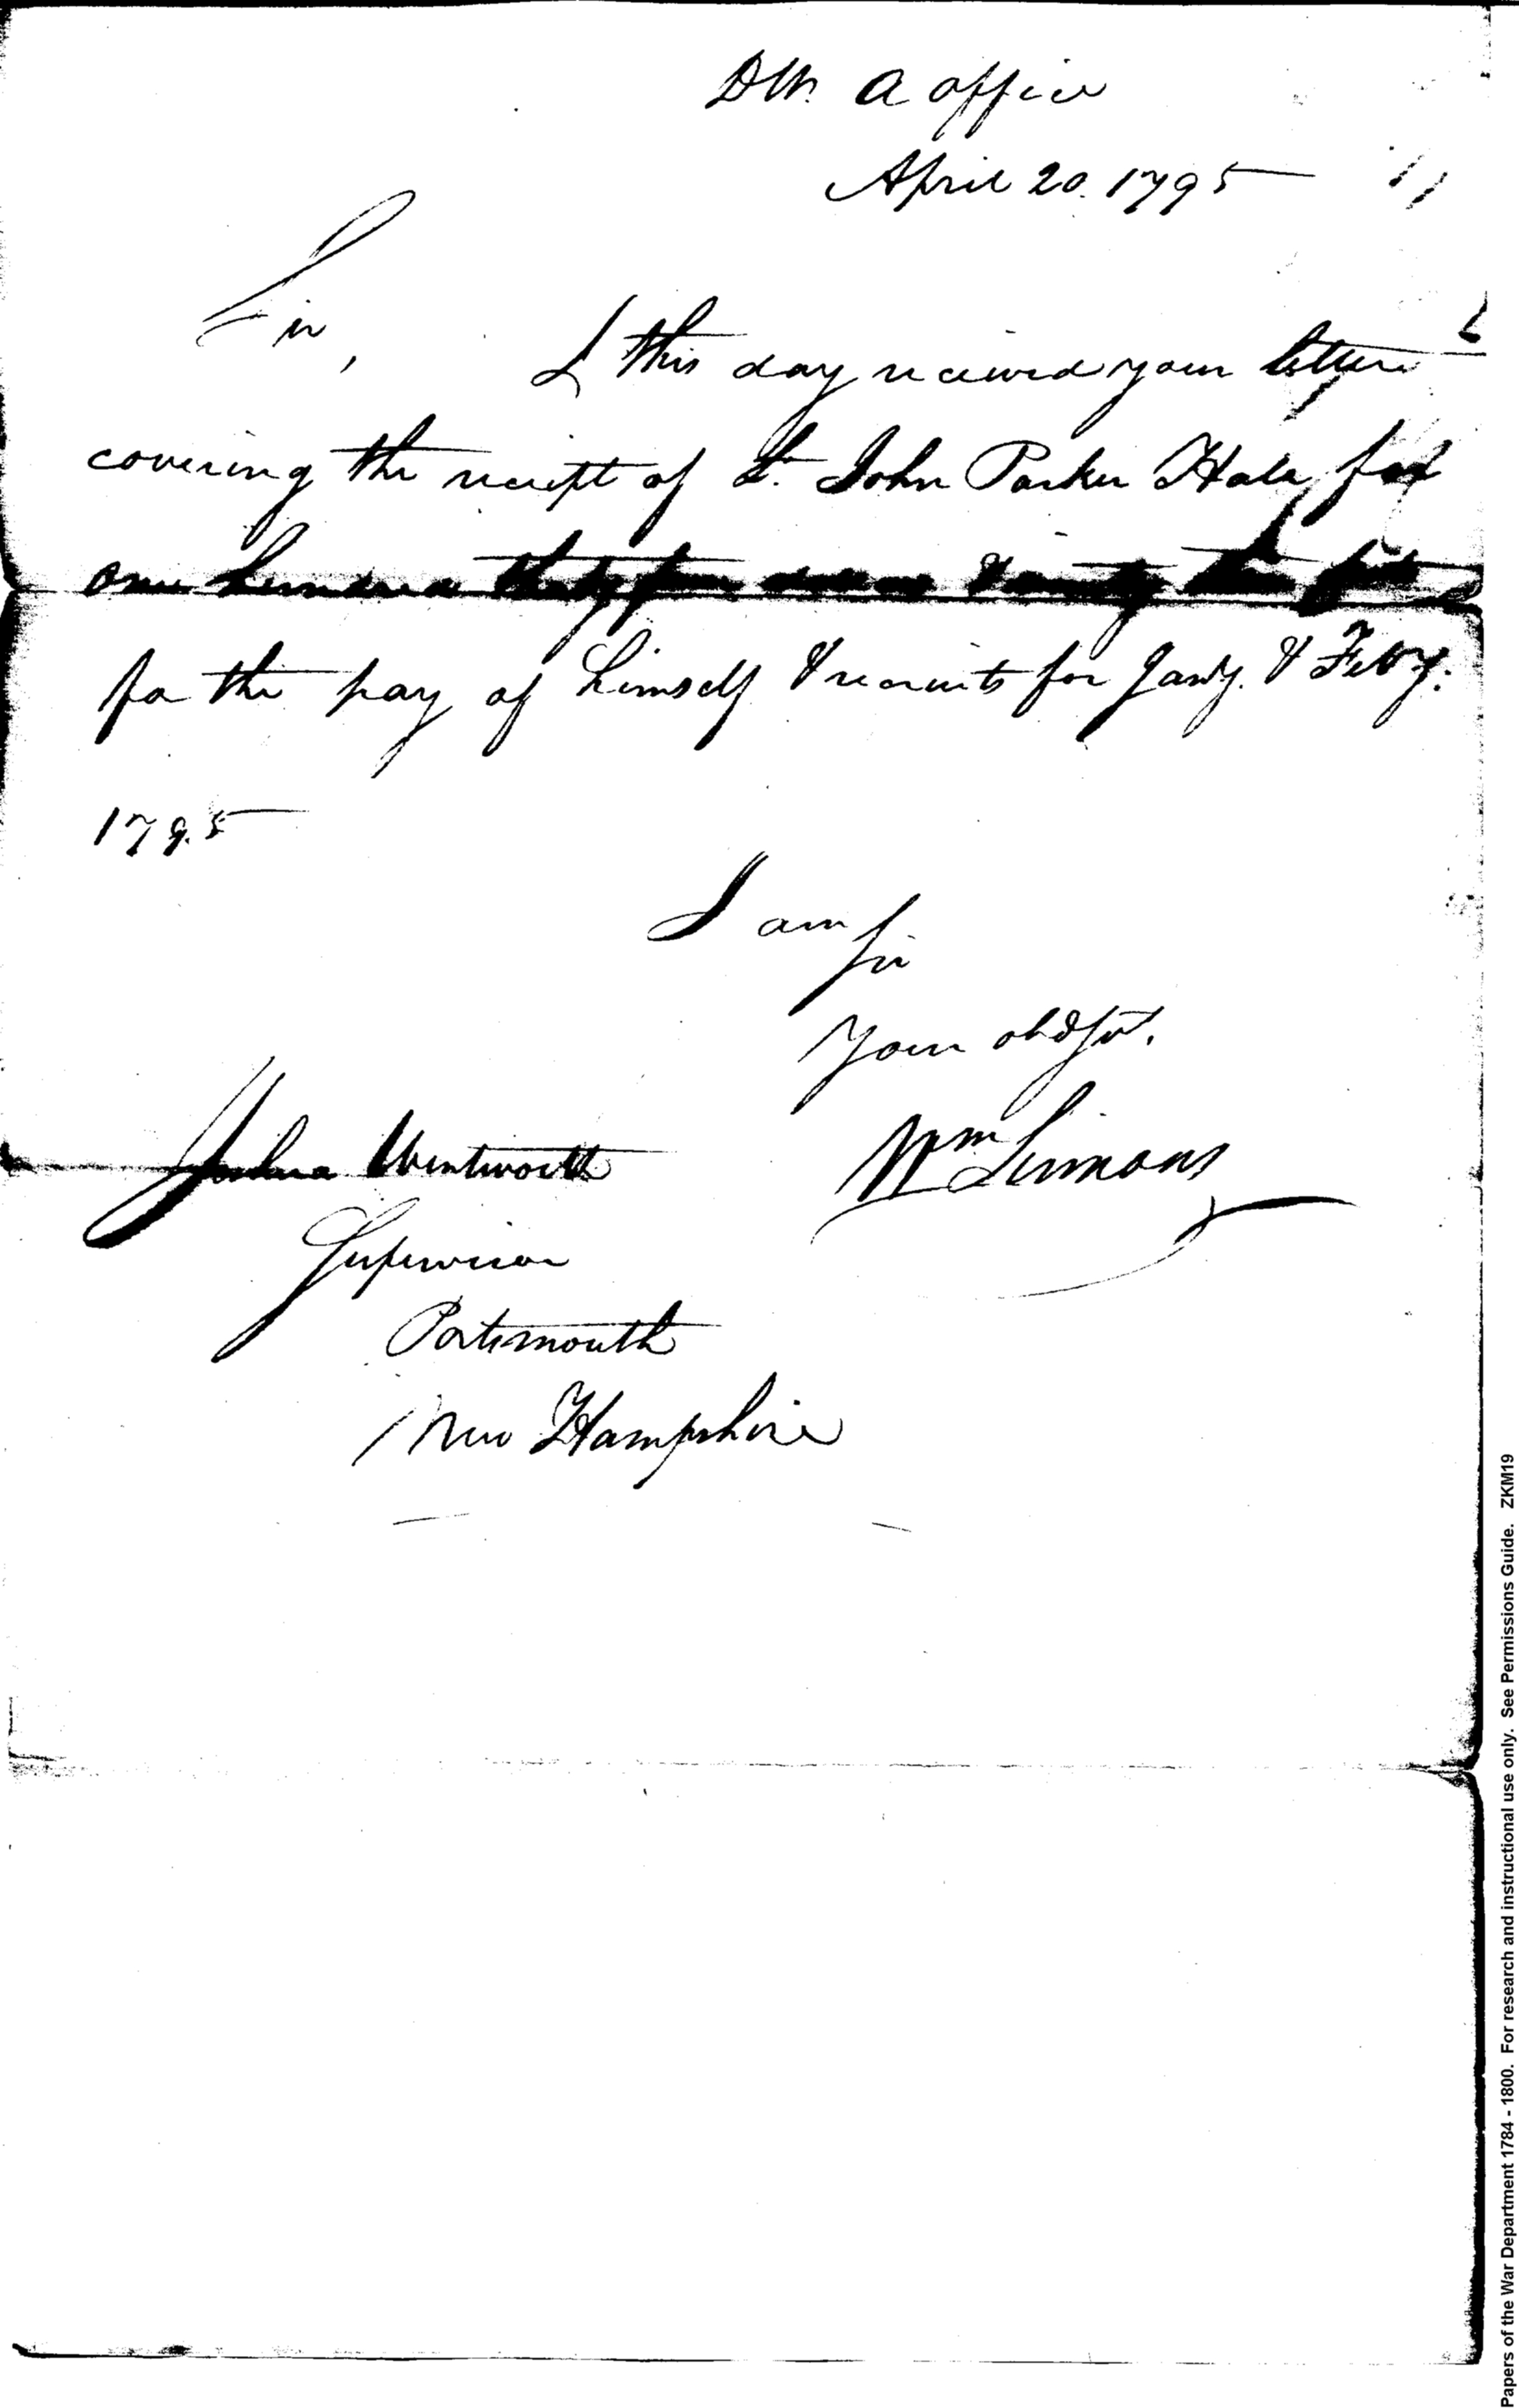 DW. A office
April 20. 1795
Sir,
I this day received your letter
covering the receipt of Lt. John Parker Hale for
one hundred thirty four dollars & ninety
for the pay of himself & recruits for Jany. & Feby.
1795
I am
Sir
Your obd St.
Wm Simmons
Joshua Wentworth
Supervisor
Portsmouth
New Hampshire
Papers of the War Department 1784 - 1800. For research and instructional use only. See Permissions Guide. ZKM19